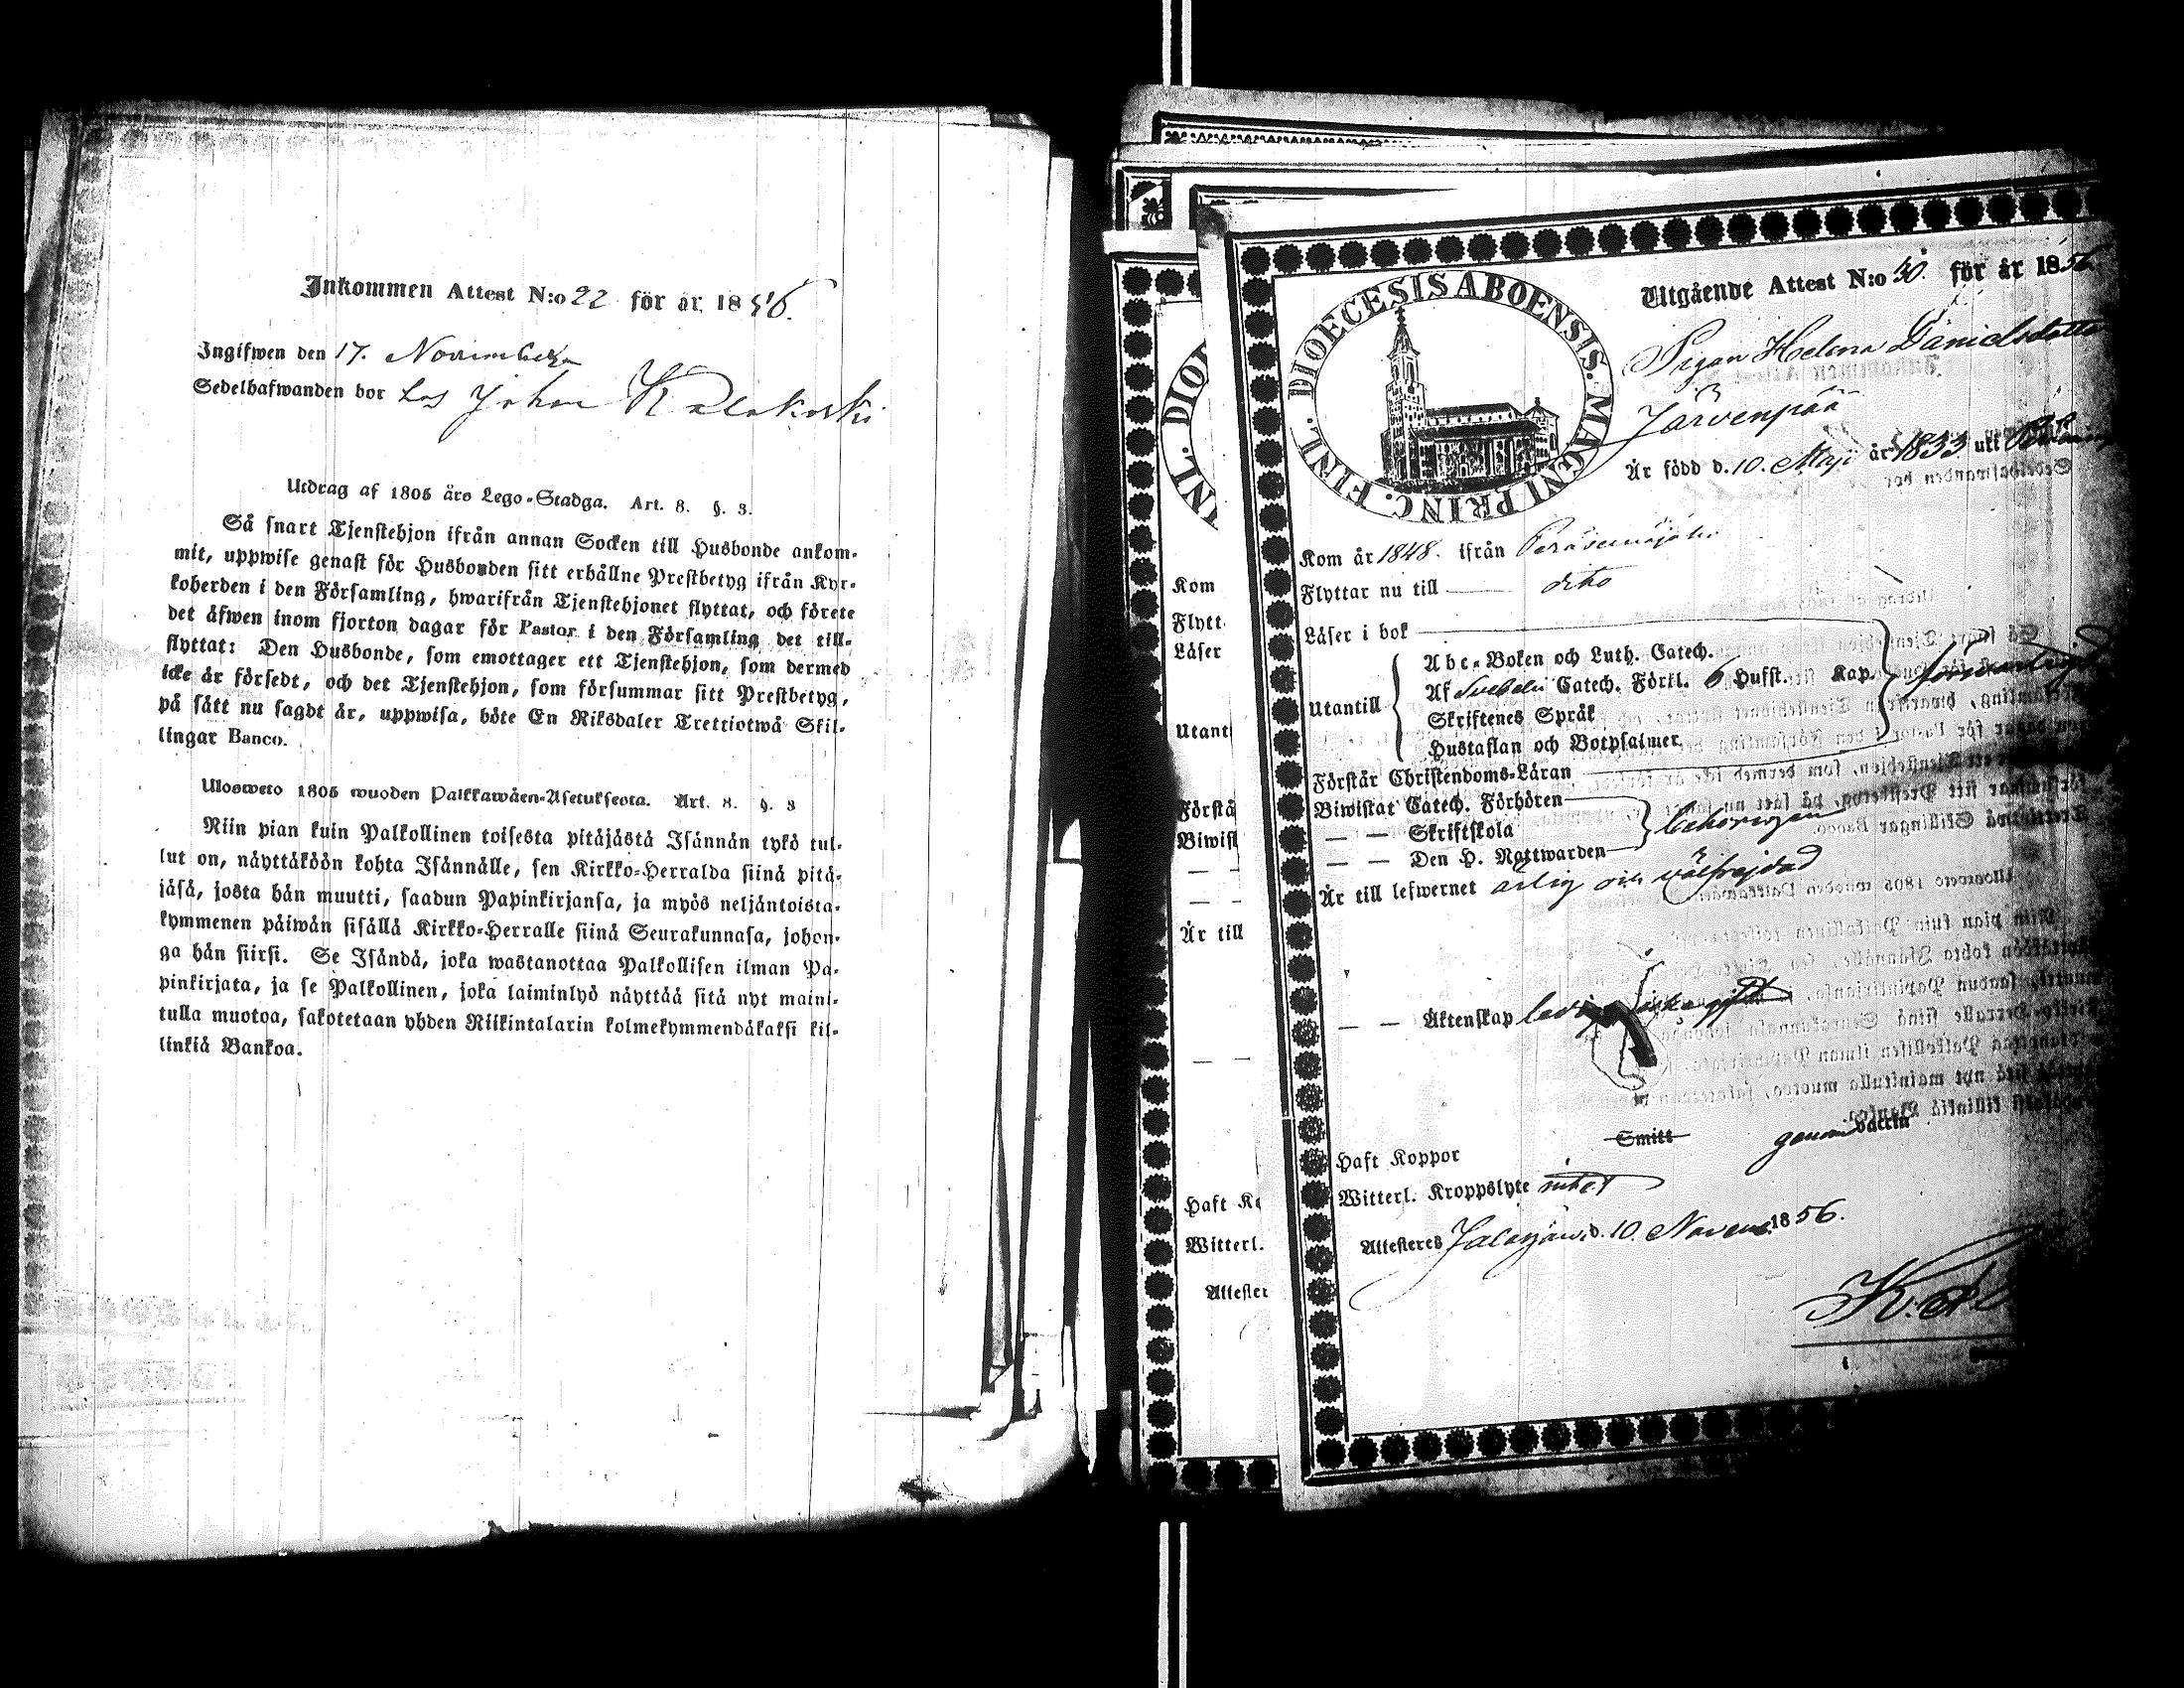 Inkommen Attest N:o 22 för år 1856.
Ingifwen den 17. November
Sedelhafwanden bor hos Johan Kalakoski
Utdrag af 1805 års Lego-Stadga. Art. 8. §. 3.
Så snart Tjenstehjon ifrån annan Socken till Husbonde ankom-
mit, uppwise genast för Husbonden sitt erhållne Prestbetyg ifrån Kyr-
koherden i den Församling, hwarifrån Tjenstehjonet flyttat, och förete
det äfwen inom fjorton dagar för Pastor i den Församling det till-
flyttat: Den Husbonde, som emottager ett Tjenstehjon, som dermed
icke är försedt, och det Tjenstehjon, som försummar sitt Prestbetyg,
på sätt nu sagdt är, uppwisa, böte En Riksdaler Trettiotwå Skil-
lingar Banco.
Ulosweto 1805 wuoden Palkkawäen-Asetuksesta. Art. 8. §. 3
Niin pian kuin Palkollinen toisesta pitäjästä Isännän tykö tul-
lut on, näyttäköön kohta Isännälle, sen Kirkko-Herralda siinä pitä-
jäsä, josta hän muutti, saadun Papinkirjansa, ja myös neljäntoista-
kymmenen päiwän sisällä Kirkko-Herralle siinä Seurakunnasa, johon-
ga hän siirsi. Se Isändä, joka wastanottaa Palkollisen ilman Pa-
pinkirjata, ja se Palkollinen, joka laiminlyö näyttää sitä nyt maini-
tulla muotoa, sakotetaan yhden Riikintalarin kolmekymmendäkaksi kil-
linkiä Bankoa.
DIOECESIS ABOENSIS. MAGNI PRINC. FINL.
Utgående Attest N:o 30. för år 1856
Pigan Helena Danielsdotter
Järvenpää
Är född d. 10. Maji år 1833 utt
Kom år 1848. ifrån Peräseinäjoki
Flyttar nu till dito
Läser i bok
Utantill
Abc-Boken och Luth. Catech.
Af Svebelii Catech. Förkl. 6 Hufst. Kap.
Skriftenes Språk
Hustaflan och Botpsalmer
försvarligt
Förstår Christendoms-Läran
Biwistat Catech. Förhören
— — Skriftskola
— — Den H. Nattwarden
behörigen
Är till lefwernet ärlig och välfrejdad
— — Äktenskap ledig
Haft Koppor Smitt genom vaccin
Witterl. Kroppslyte intet
Attesteres Jalasjärvi d. 10. Novem. 1856.
Kom
Flytt
Läser
Utant
Förstå
Biwist
— —
— —
Är till
— —
Haft Ko
Witterl.
Attester